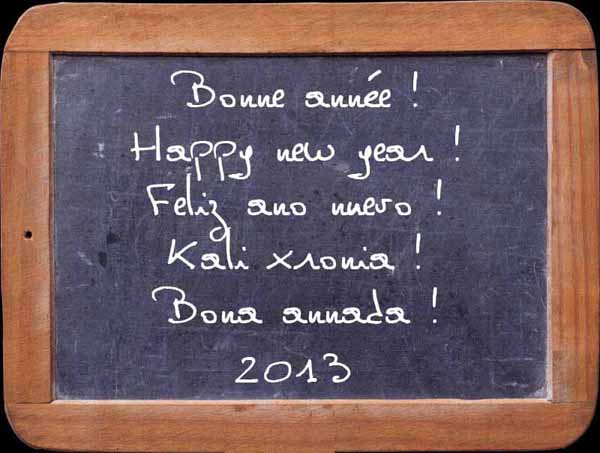 Bonne année !
Happy new year !
Feliz ano nuevo !
Kali xronia !
Bona annada !
2013